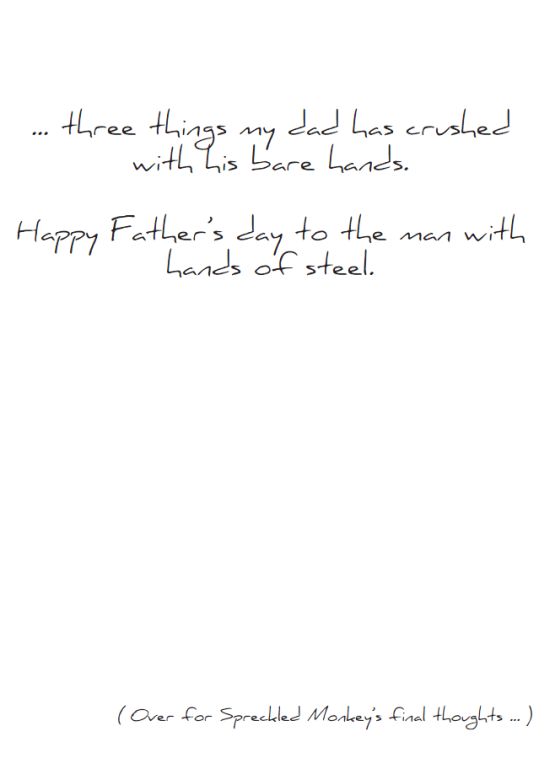 ... three things my dad has crushed
with his bare hands.
Happy Father's day to the man with
hands of steel.
( Over for Spreckled Monkey's final thoughts ... )